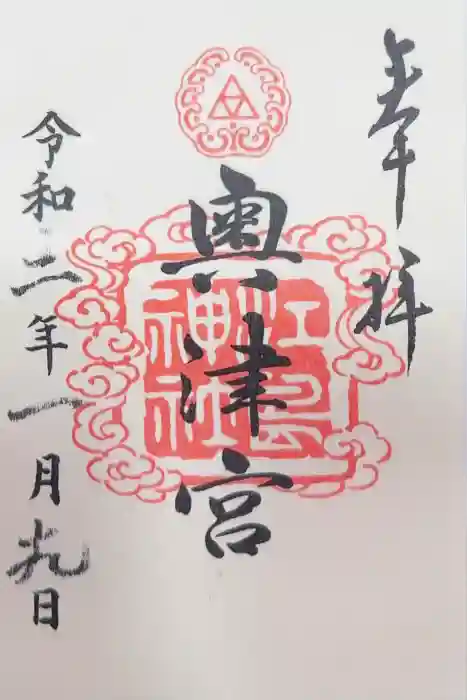 奉拝
奥津宮
江島
神社
令和二年一月 日